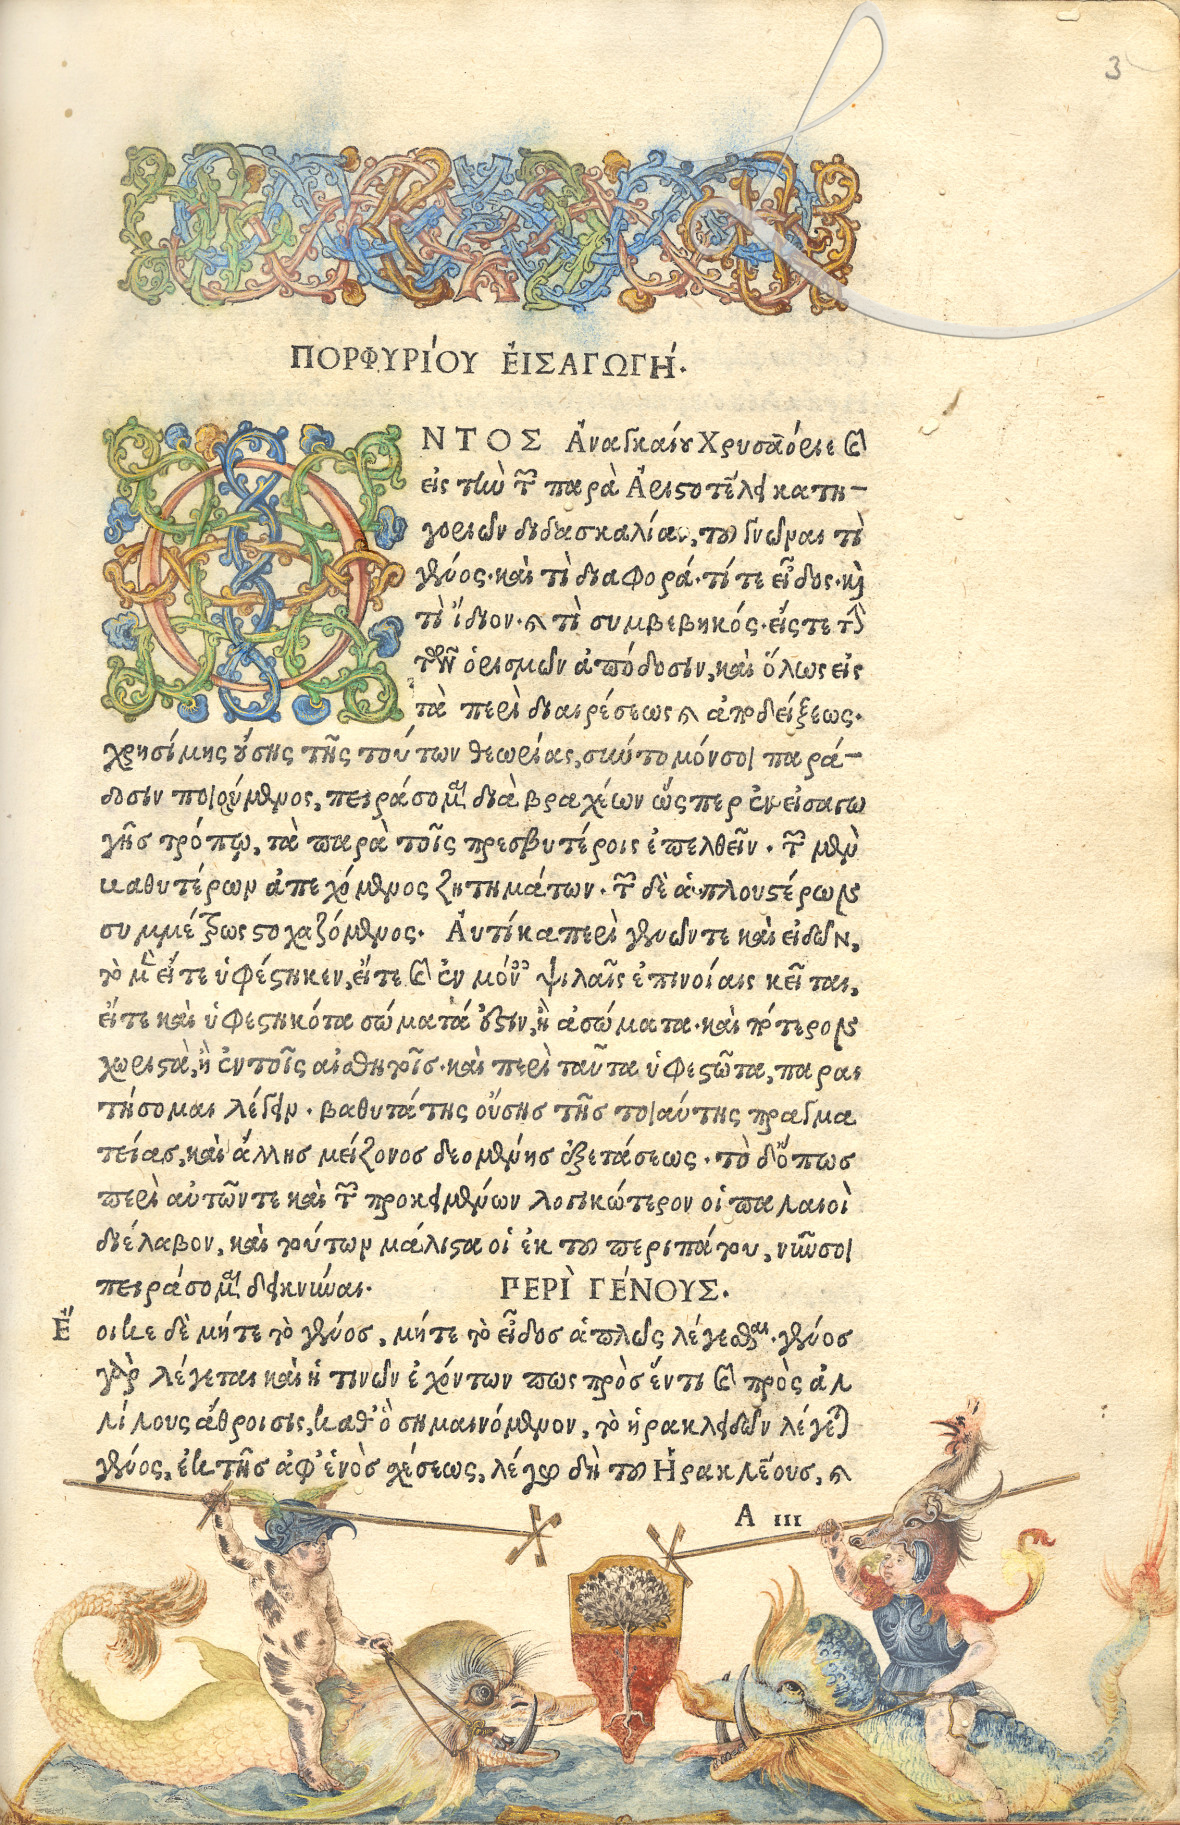 3
ΠΟΡΦΥΡΊΟΥ ἘΙΣΑΓΩΓΉ.
ΟΝΤΟΣ Ἀναγκαίου Χρυσαόριε καὶ
εἰς τὴν τῶν παρὰ Ἀριστοτέλει κατη-
γοριῶν διδασκαλίαν, τοῦ γνῶναι τὶ
γένος· καὶ τὶ διαφορά· τί τε εἶδος· καὶ
τὶ ἴδιον· καὶ τὶ συμβεβηκός· εἴς τε τὴν
τῶν ὁρισμῶν ἀπόδοσιν, καὶ ὅλως εἰς
τὰ περὶ διαιρέσεως καὶ ἀποδείξεως·
χρησίμης οὔσης τῆς τούτων θεωρίας, σύντομόν σοι παρά-
δοσιν ποιούμενος, πειράσομαι διὰ βραχέων ὥσπερ ἐν εἰσαγω
γῆς τρόπῳ, τὰ παρὰ τοῖς πρεσβυτέροις ἐπελθεῖν· τῶν μὲν
βαθυτέρων ἀπεχόμενος ζητημάτων· τῶν δὲ ἁπλουστέρων
συμμέτρως στοχαζόμενος· Ἀυτίκα περὶ γενῶν τε καὶ εἰδῶν,
τὸ μὲν εἴτε ὑφέστηκεν, εἴτε καὶ ἐν μόναις ψιλαῖς ἐπινοίαις κεῖται,
εἴτε καὶ ὑφεστηκότα σώματά ἐστιν, ἢ ἀσώματα· καὶ πότερον
χωριστὰ, ἢ ἐν τοῖς αἰσθητοῖς· καὶ περὶ ταῦτα ὑφεστῶτα, παραι
τήσομαι λέγειν· βαθυτάτης οὔσης τῆς τοιαύτης πραγμα
τείας, καὶ ἄλλης μείζονος δεομένης ἐξετάσεως· τὸ δ' ὅπως
περὶ αὐτῶν τε καὶ τῶν προκειμένων λογικώτερον οἱ παλαιοὶ
διέλαβον, καὶ τούτων μάλιστα οἱ ἐκ τοῦ περιπάτου, νῦν σοι
πειράσομαι δεικνύναι· ΠΕΡῚ ΓΈΝΟΥΣ.
Ἔ οικε δὲ μήτε τὸ γένος, μήτε τὸ εἶδος ἁπλῶς λέγεσθαι· γένος
γὰρ λέγεται καὶ ἡ τινῶν ἐχόντων πως πρὸς ἕν τι καὶ πρὸς ἀλ
λήλους ἄθροισις, καθ' ὃ σημαινόμενον, τὸ ἡρακλειδῶν λέγεται
γένος, ἐκ τῆς ἀφ' ἑνὸς σχέσεως, λέγω δὴ τοῦ Ἡρακλέους, καὶ
A iii